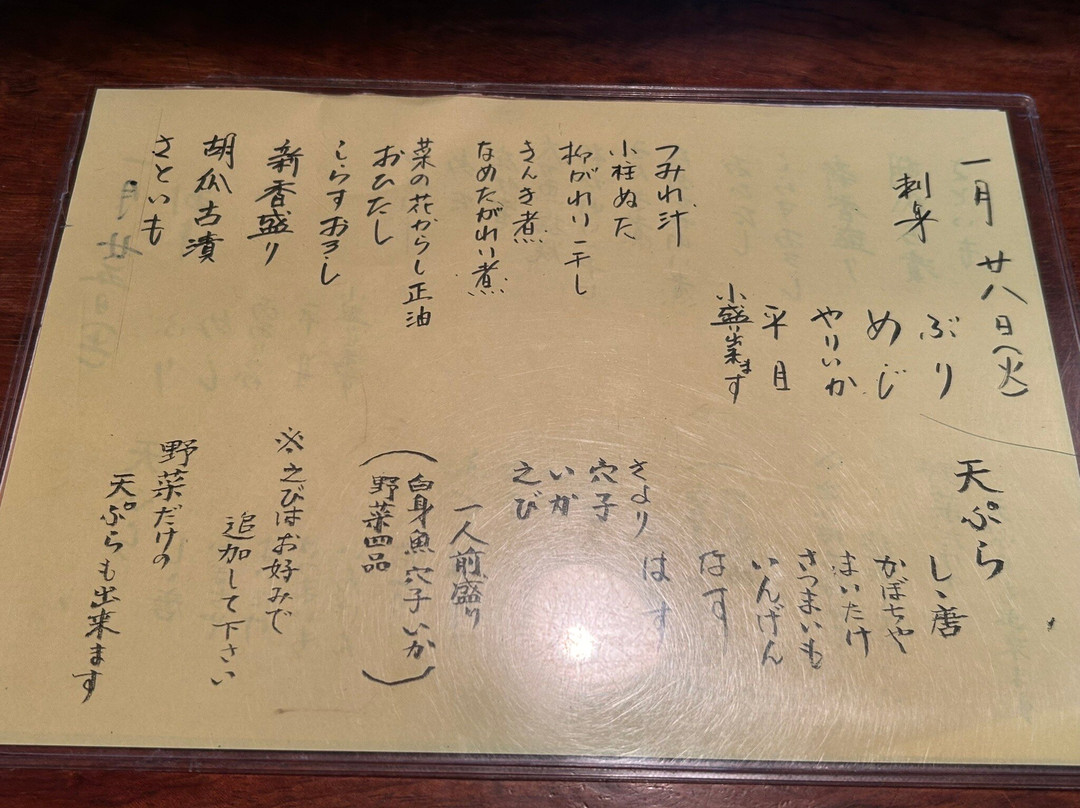 一月廿八日(火)
刺身
ぶり
めじ
やりいか
平目
小盛り出来ます
つみれ汁
小柱ぬた
柳がれい一干し
きんき煮
なめたがれい煮
菜の花からし正油
おひたし
しらすおろし
新香盛り
胡瓜古漬
さといも
天ぷら
しゝ唐
かぼちゃ
まいたけ
さつまいも
いんげん
なす
はす
さより
穴子
いか
えび
一人前盛り
(白身魚 穴子 いか
野菜四品)
※えびはお好みで
追加して下さい
野菜だけの
天ぷらも出来ます